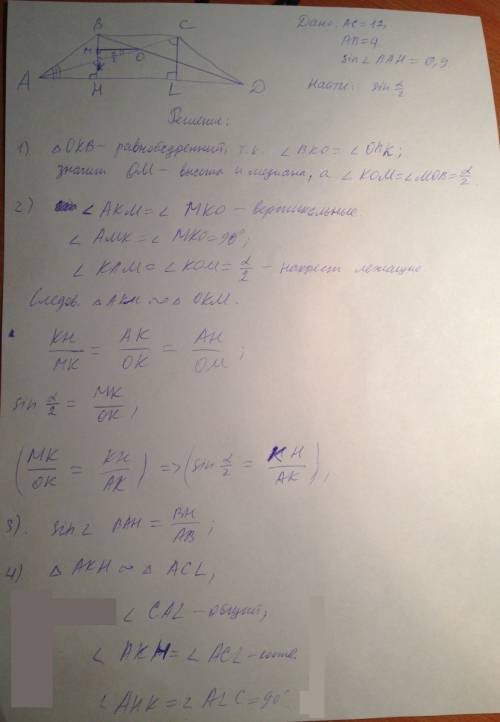 Дано: AC=12,
AB=9
sin∠BAH = 0,9
Найти: sin α/2
B C
M O
A H L D
Решение:
1) △OKB – равнобедренный т.к. ∠BKO = ∠OBK;
значит OM – высота и медиана, а ∠KOM=∠MOB=α/2.
2) ∠AKM = ∠MKO – вертикальные.
∠AMK = ∠MKO = 90°;
∠KAM = ∠KOM = α/2 – накрест лежащие
Следов. △AKH ∾ △OKM.
KH/MK = AK/OK = AH/OM;
sin α/2 = MK/OK,
(MK/OK = KH/AK) => (sin α/2 = KH/AK),
3). sin∠BAH = BH/AB;
4) △AKH ∾ △ACL,
∠CAL – общий,
∠AKH = ∠ACL – соотв.
∠AHK = ∠ALC = 90°